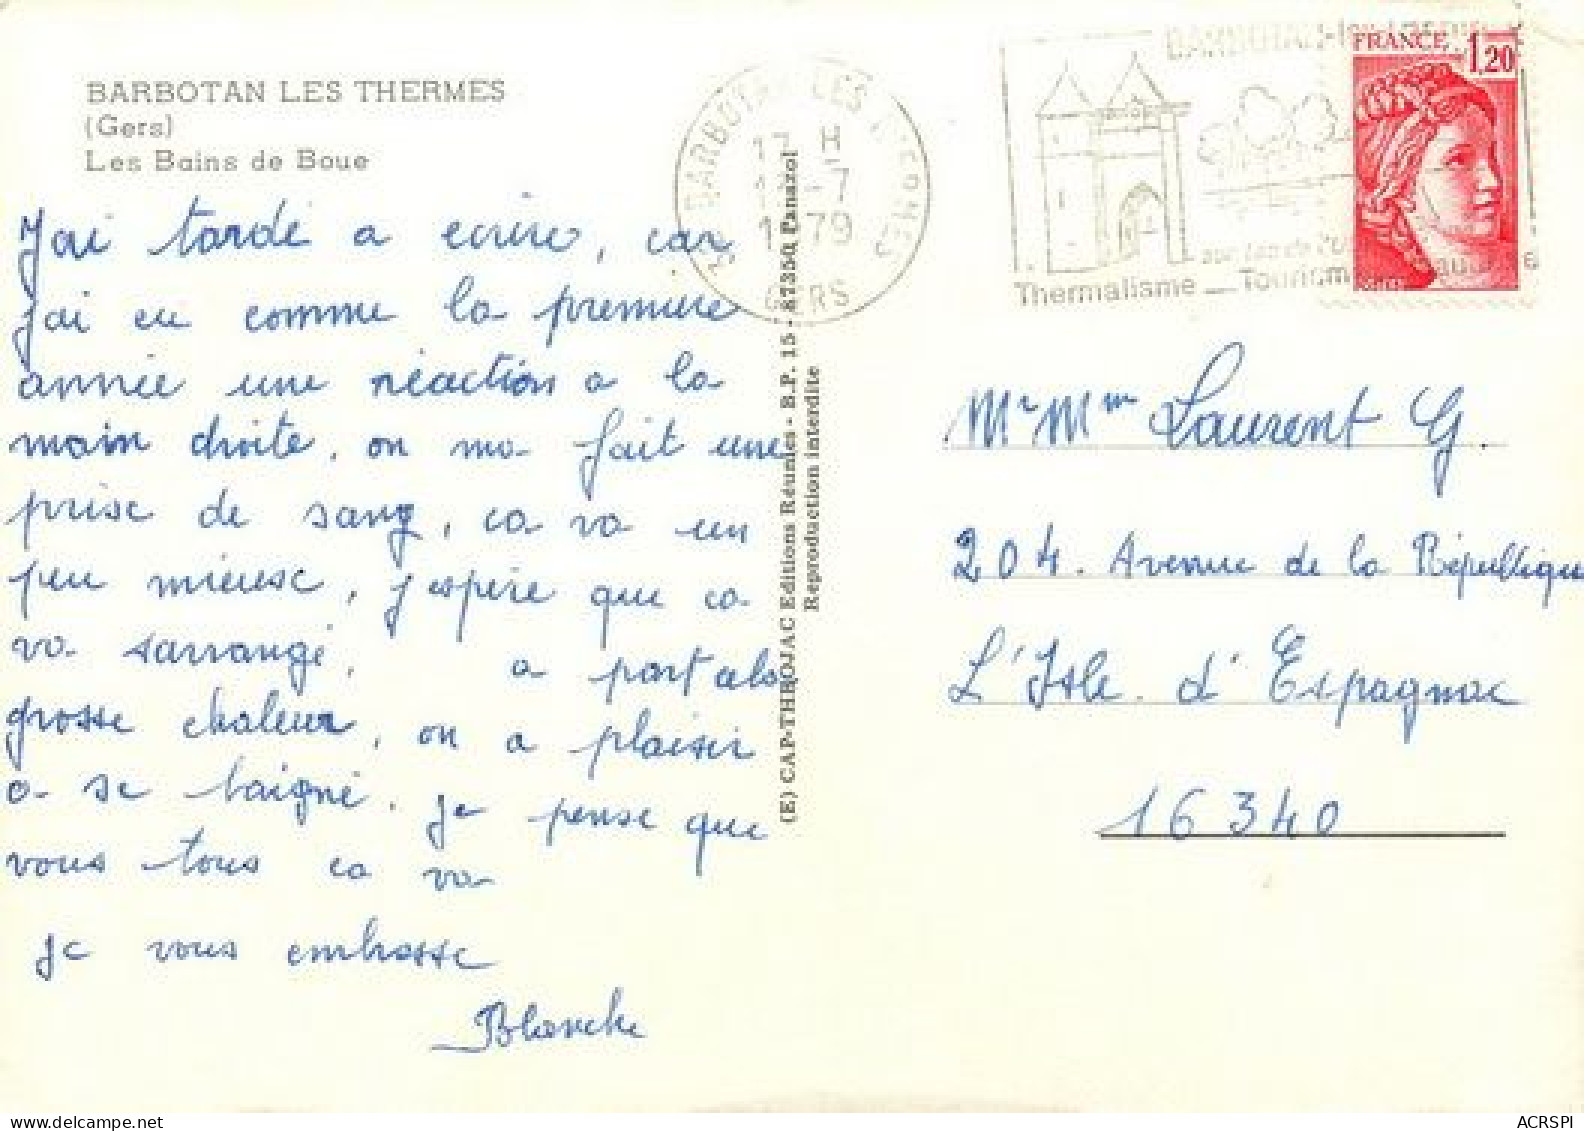 BARBOTAN LES THERMES
(Gers)
Les Bains de Boue
J'ai tardé a ecrire, car
j'ai eu comme la premiere
année une réaction a la
main droite, on ma fait une
prise de sang, ca va un
peu mieux, j'espere que ca
va sarrangé, a part cela
grosse chaleur, on a plaisir
a se baigné. je pense que
vous tous ca va
je vous embrasse
Blanche
(E) CAP-THEOJAC Editions Réunies - B.P. 15 - 87350 Panazol
Reproduction interdite
BARBOTAN LES THERMES
17 H
-7
1979
GERS
BARBOTAN-les-
Thermalisme _ Tourisme
FRANCE 1,20
Mr Mme Laurent G.
204. Avenue de la République
L'Isle. d'Espagnac
16340
ACRSPI